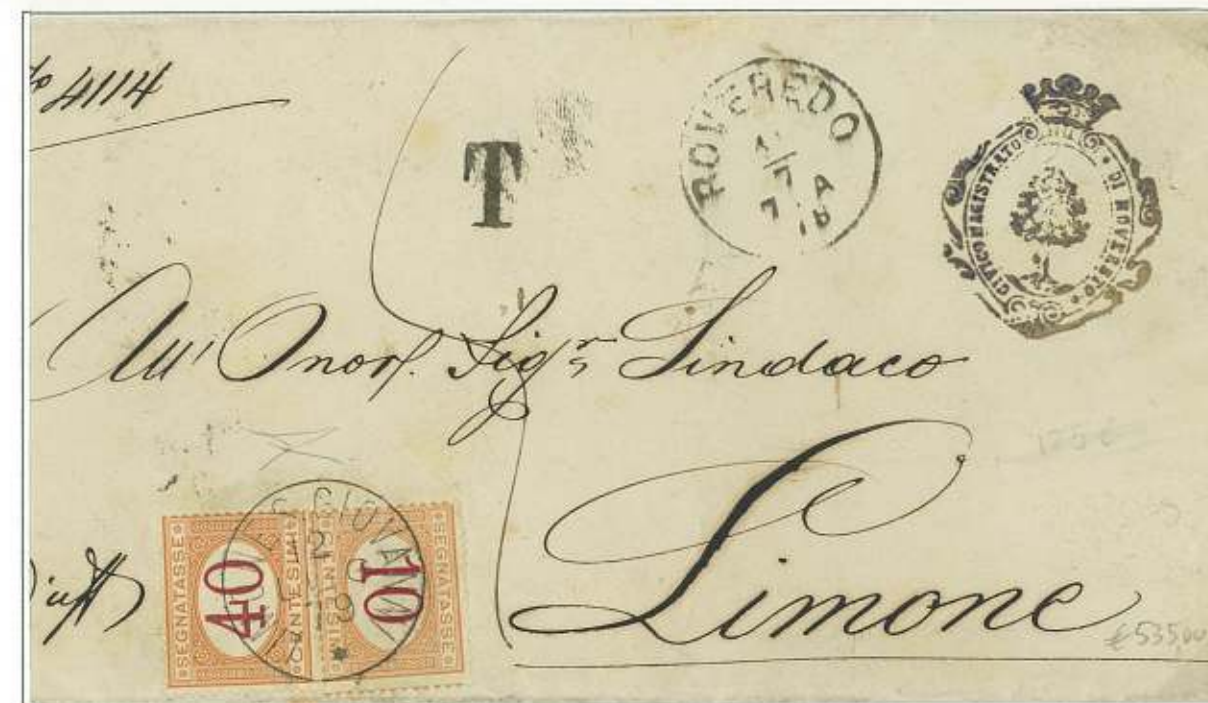 4114
T
ROVEREDO
7 A
78
CIVICO MAGISTRATO DI ROVERETO
All' Onor. Sigr Sindaco
Limone
SEGNATASSE 40 CENTESIMI
SEGNATASSE 10 CENTESIMI
S. GIOVANNI
€535,00